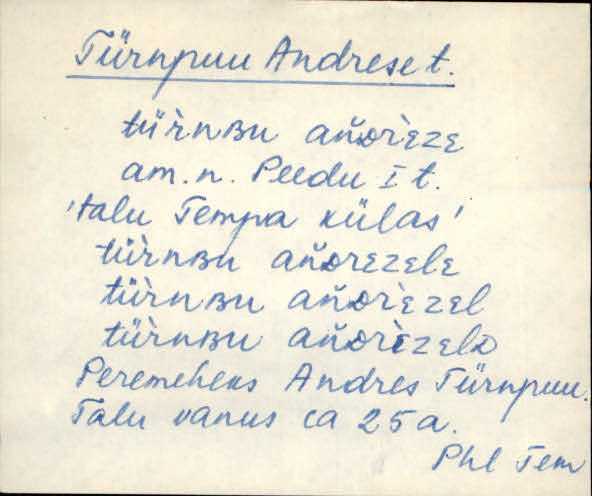 Türnpuu Andrese t.
türnʙu añᴅrèze
am.n. Peedu I t.
'talu Tempa külas'
türnʙu añᴅrezele
türnʙu añᴅrèzel
türnʙu añᴅrèzelᴅ
Peremeheks Andres Türnpuu.
Talu vanus ca 25 a.
Phl Tem